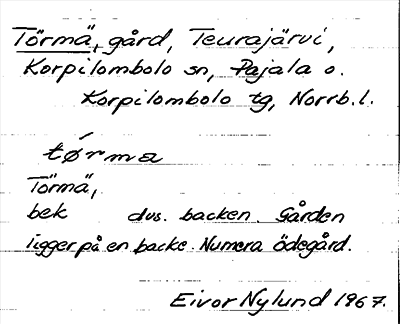 Törmä, gård, Teurajärvi,
Korpilombolo sn, Pajala o.
Korpilombolo tg, Norrb.l.
tørma
Törmä,
bek dvs. backen. Gården
ligger på en backe. Numera ödegård.
Eivor Nylund 1967.